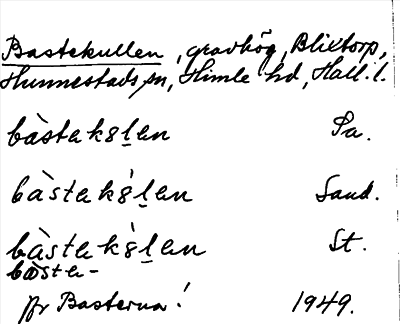 Bastekullen, gravhög, Blixtorp,
Hunnestads sn, Himle hd, Hall. l.
bàstekɞl̲en Pa.
bàstekɞ́l̲en Sand.
bàstekɞ́l̲en St.
bàsta-
jfr Basterna! 1949.